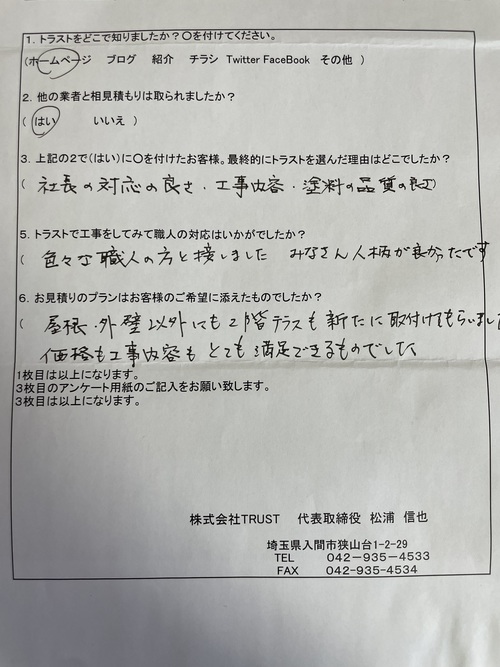 1. トラストをどこで知りましたか？〇を付けてください。
(ホームページ ブログ 紹介 チラシ Twitter FaceBook その他 )
2. 他の業者と相見積もりは取られましたか？
( はい いいえ )
3. 上記の2で(はい)に〇を付けたお客様。最終的にトラストを選んだ理由はどこでしたか？
( 社長の対応の良さ・工事内容・塗料の品質の良さ)
5. トラストで工事をしてみて職人の対応はいかがでしたか？
( 色々な職人の方と接しました みなさん人柄が良かったです
6. お見積りのプランはお客様のご希望に添えたものでたか？
( 屋根・外壁以外にも2階テラスも新たに取付けてもらいました
価格も工事内容もとても満足できるものでした
1枚目は以上になります。
3枚目のアンケート用紙のご記入をお願い致します。
3枚目は以上になります。
株式会社TRUST 代表取締役 松浦 信也
埼玉県入間市狭山台1-2-29
TEL 042-935-4533
FAX 042-935-4534